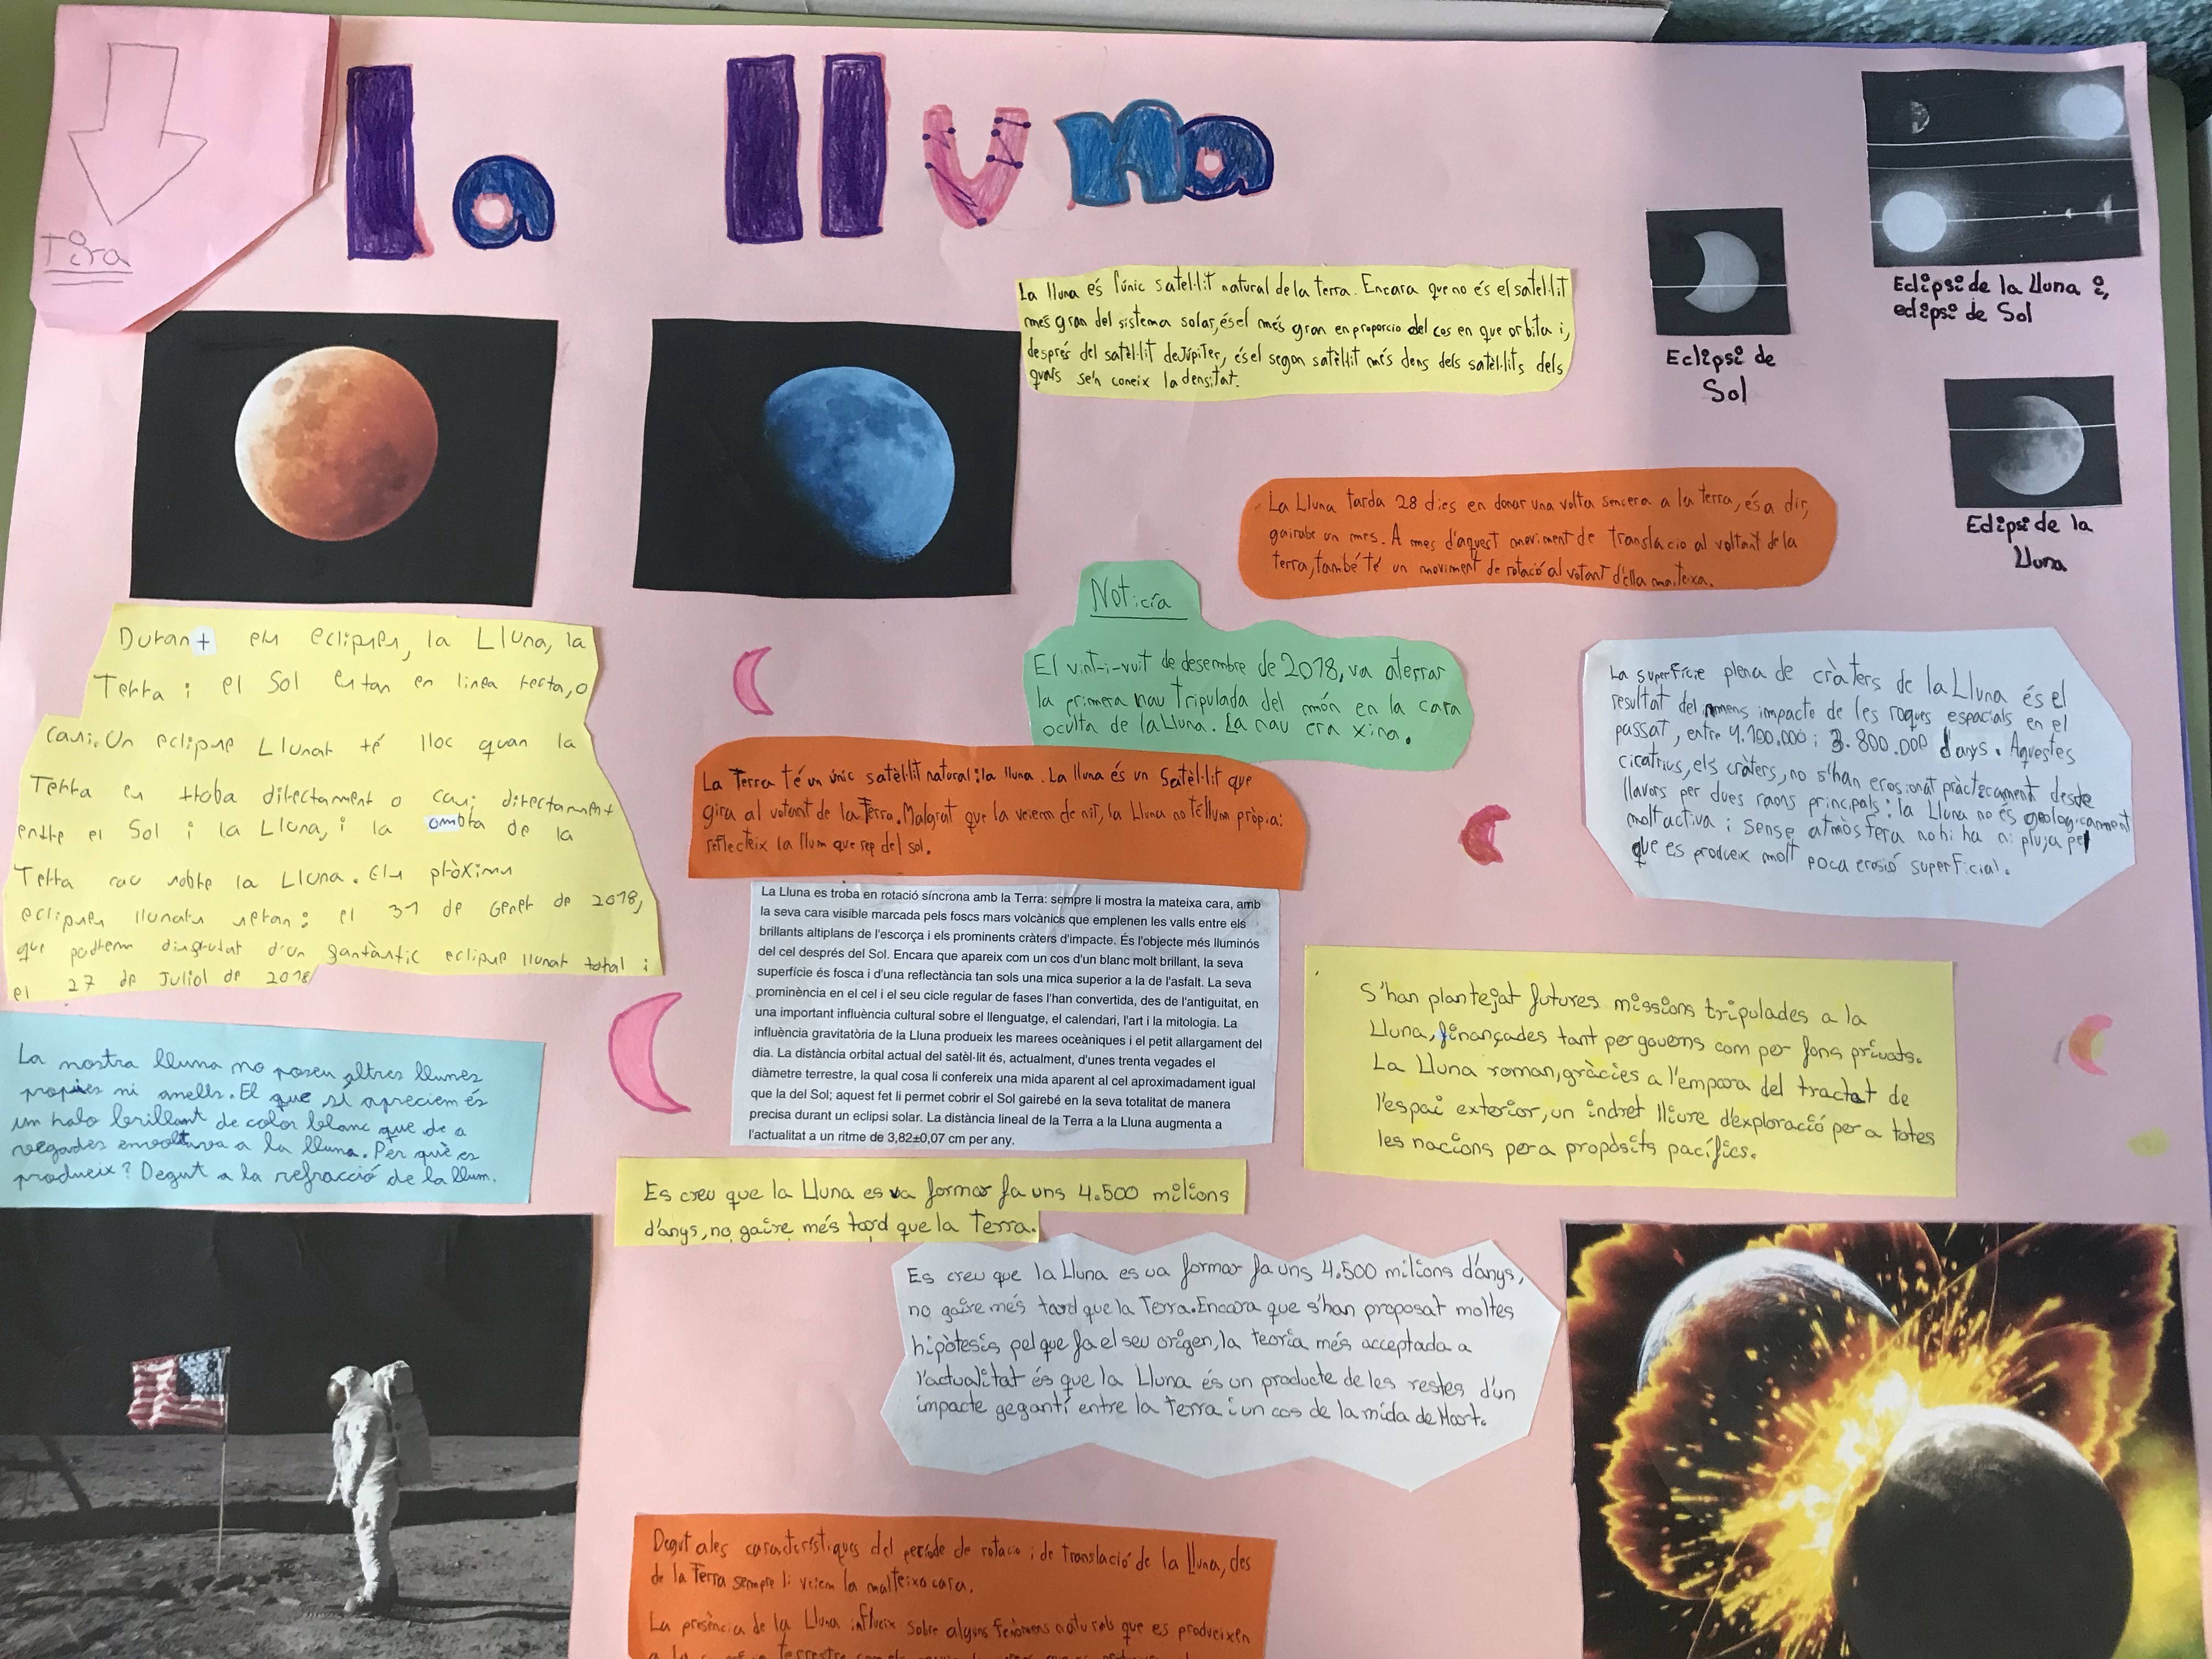 la lluna
Tira
La lluna és l'únic satèl·lit natural de la terra. Encara que no és el satèl·lit
més gran del sistema solar, és el més gran en proporcio del cos en que orbita i,
després del satèl·lit de Júpiter, és el segon satèl·lit més dens dels satèl·lits dels
quals se'n coneix la densitat.
Eclipsi de
Sol
Eclipsi de la lluna i,
eclipsi de Sol
Eclipsi de la
lluna
La Lluna tarda 28 dies en donar una volta sencera a la terra, és a dir,
gairabe un mes. A mes d'aquest moviment de translacio al voltant de la
terra, també té un moviment de rotació al votant d'ella mateixa.
Noticía
El vint-i-vuit de desembre de 2018, va aterrar
la primera nau tripulada del món en la cara
oculta de la Lluna. La nau era xina.
Durant els eclipses, la Lluna, la
Terra i el Sol estan en linea recta, o
casi. Un eclipse Llunar té lloc quan la
Terra es troba directament o casi directament
entre el Sol i la Lluna, i la ombra de la
Terra cau sobre la Lluna. Els pròxims
eclipses llunars seran: el 31 de Gener de 2018,
que podrem disfrutar d'un fantàstic eclipse llunar total i
el 27 de Juliol de 2018
La Terra té un únic satèl·lit natural: la lluna. La lluna és un Satèl·lit que
gira al votant de la Terra. Malgrat que la veiem de nit, la Lluna no té llum pròpia:
reflecteix la llum que rep del sol.
La superfície plena de cràters de la Lluna és el
resultat del immens impacte de les roques espacials en el
passat, entre 4.100.000 i 3.800.000 d'anys. Aquestes
cicatrius, els cràters, no s'han erosionat pràctecament desde
llavors per dues raons principals: la Lluna no és geologicarment
molt activa i sense atmòsfera no hi ha ni pluja pel
que es produeix molt poca erosió superficial.
La Lluna es troba en rotació síncrona amb la Terra: sempre li mostra la mateixa cara, amb
la seva cara visible marcada pels foscs mars volcànics que emplenen les valls entre els
brillants altiplans de l'escorça i els prominents cràters d'impacte. És l'objecte més lluminós
del cel després del Sol. Encara que apareix com un cos d'un blanc molt brillant, la seva
superfície és fosca i d'una reflectància tan sols una mica superior a la de l'asfalt. La seva
prominència en el cel i el seu cicle regular de fases l'han convertida, des de l'antiguitat, en
una important influència cultural sobre el llenguatge, el calendari, l'art i la mitologia. La
influència gravitatòria de la Lluna produeix les marees oceàniques i el petit allargament del
dia. La distància orbital actual del satèl·lit és, actualment, d'unes trenta vegades el
diàmetre terrestre, la qual cosa li confereix una mida aparent al cel aproximadament igual
que la del Sol; aquest fet li permet cobrir el Sol gairebé en la seva totalitat de manera
precisa durant un eclipsi solar. La distància lineal de la Terra a la Lluna augmenta a
l'actualitat a un ritme de 3,82±0,07 cm per any.
La nostra lluna no poseu altres llunes
propies ni anells. El que sí apreciem és
un halo brillant de color blanc que de a
vegades envoltava a la lluna. Per què es
produeix? Degut a la refracció de la llum.
S'han plantejat futures missions tripulades a la
Lluna, finançades tant per governs com per fons privats.
La Lluna roman, gràcies a l'empara del tractat de
l'espai exterior, un indret lliure d'exploració per a totes
les nacions per a propòsits pacífics.
Es creu que la Lluna es va formar fa uns 4.500 milions
d'anys, no gaire més tard que la Terra.
Es creu que la Lluna es va formar fa uns 4.500 milions d'anys,
no gaire més tard que la Terra. Encara que s'han proposat moltes
hipòtesis pel que fa el seu origen, la teoria més acceptada a
l'actualitat és que la Lluna és un producte de les restes d'un
impacte gegantí entre la Terra i un cos de la mida de Mart.
Degut a les característiques del període de rotacio i de translació de la Lluna, des
de la Terra sempre li veiem la malteixa cara.
La presència de la Lluna influeix sobre alguns fenòmens naturals que es produeixen
terrestre